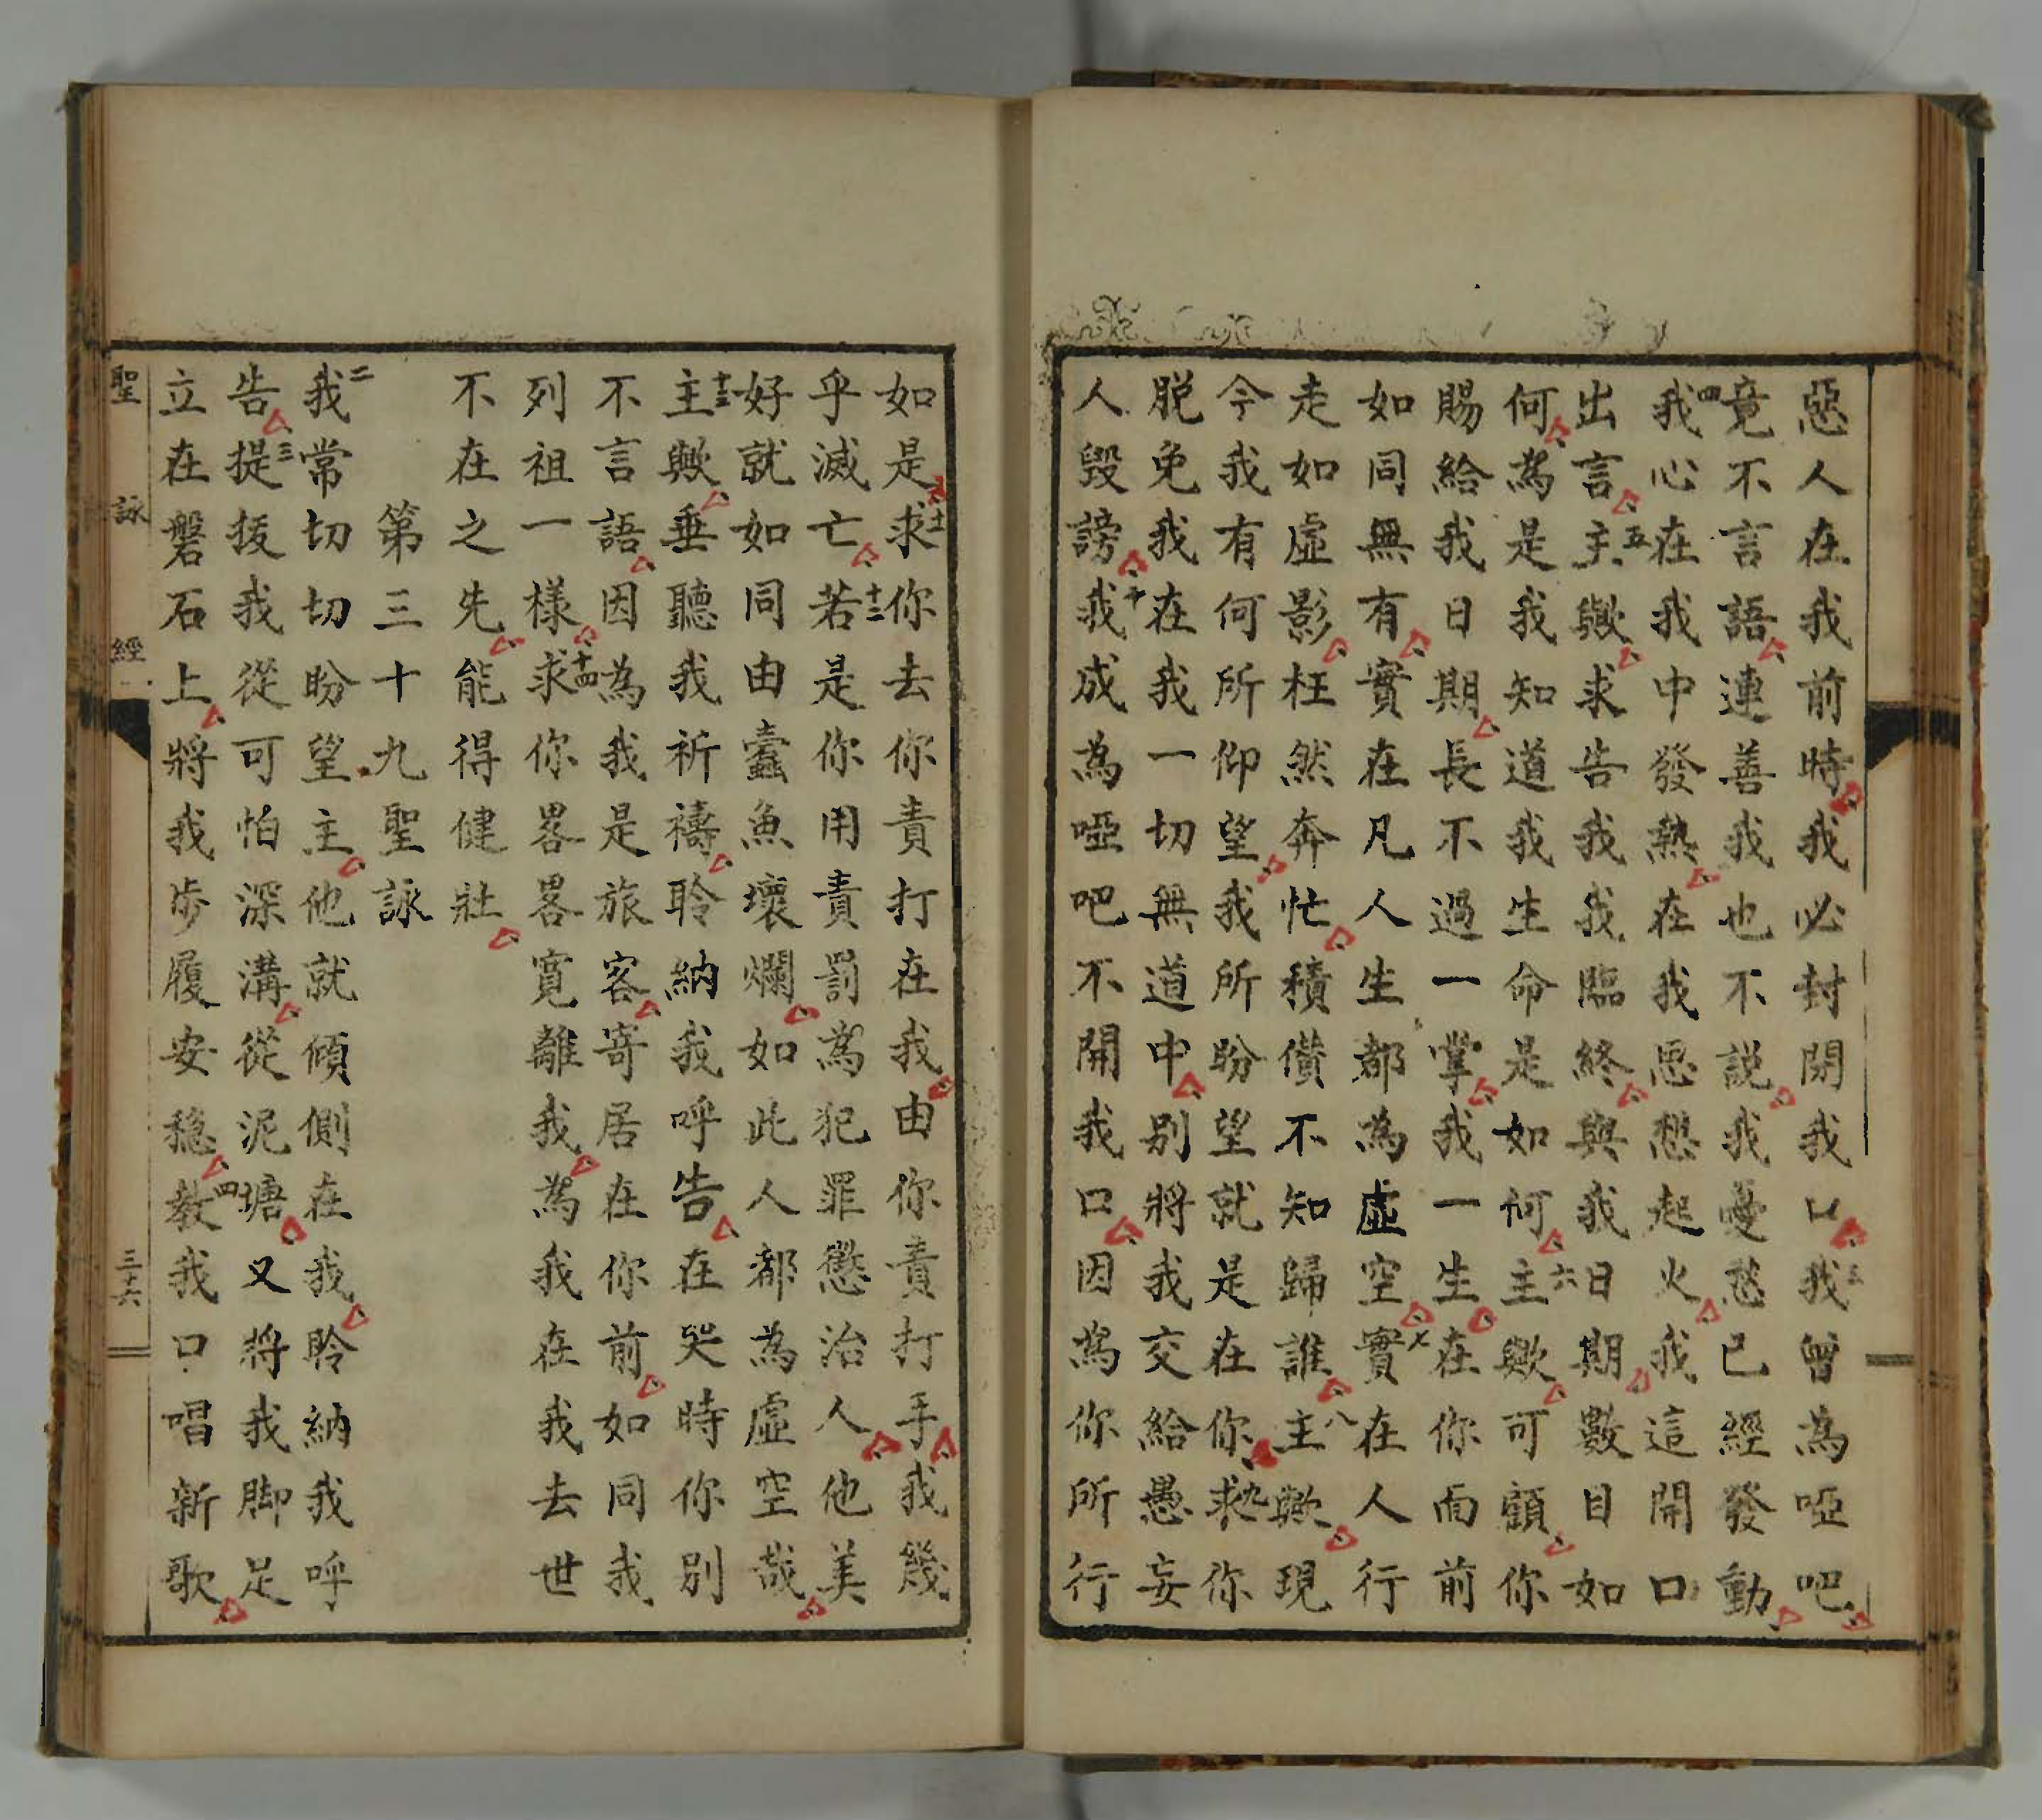 惡人在我前時我必封閉我口三我曾為啞吧
竟不言語連善我也不説我憂愁已經發動
四我心在我中發熱在我思想起火我這開口
出言五主歟求告我我臨終與我日期數目如
何為是我知道我生命是如何六主歟可顧你
賜給我日期長不過一掌我一生在你面前
如同無有實在凡人生都為虛空七實在人行
走如虛影枉然奔忙積儹不知歸誰八主歟現
今我有何所仰望我所盼望就是在你九求你
脱免我在我一切無道中別將我交給愚妄
人毀謗十我成為啞吧不開我口因為你所行
如是十一求你去你責打在我由你責打手我幾
乎滅亡十二若是你用責罰為犯罪懲治人他美
好就如同由蠹魚壞爛如此人都為虛空哉
十三主歟垂聽我祈禱聆納我呼告在哭時你別
不言語因為我是旅客寄居在你前如同我
列祖一樣十四求你畧畧寬離我為我在我去世
不在之先能得健壯
第三十九聖詠
二我常切切盼望主他就傾側在我聆納我呼
告三提拔我從可怕深溝從泥塘又將我脚足
立在磐石上將我步履安穩四教我口唱新歌
聖詠經
三十六